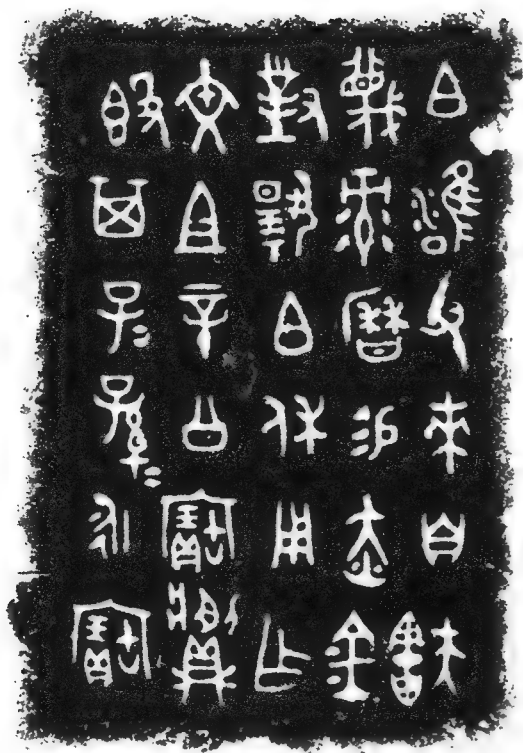 白雝父來自㝬
蔑彔曆易赤金
對揚白休用乍
文且辛公寶䵼
𣪘其子＝孫＝永寶